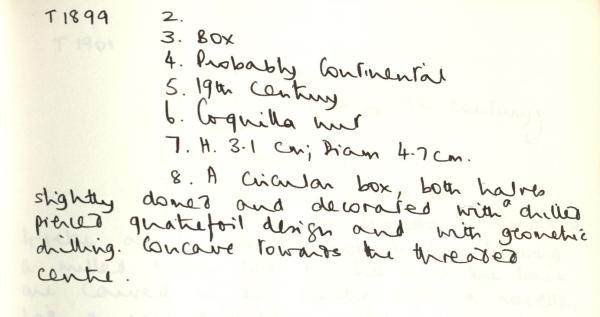 T 1899 2.
3. Box
4. Probably Continental
5. 19th century
6. Coquilla nut
7. H. 3.1 cm; Diam 4.7 cm.
8. A circular box, both halves
slightly domed and decorated with a drilled
pierced quatrefoil design and with geometric
drilling. Concave towards the threaded
centre.